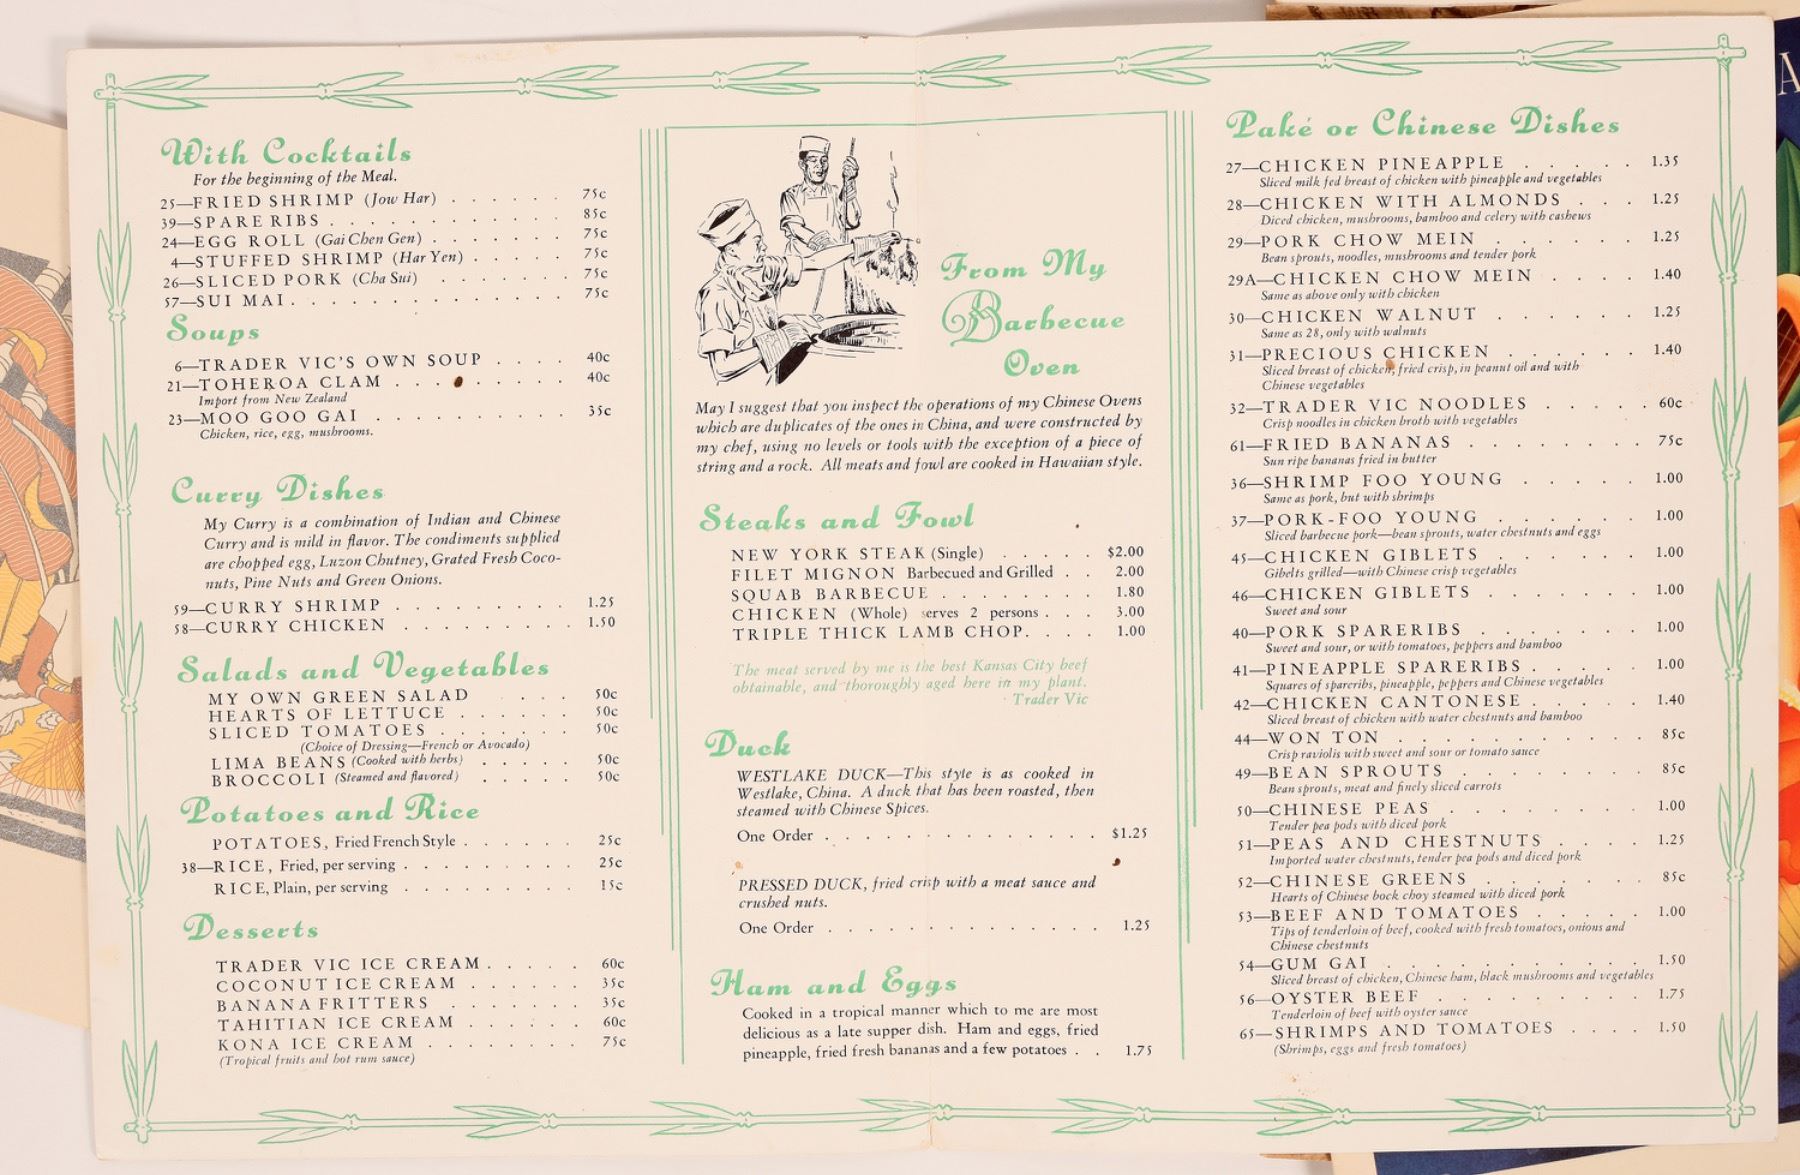 With Cocktails
For the beginning of the Meal.
25—FRIED SHRIMP (Jow Har) . . . . . . 75c
39—SPARE RIBS . . . . . . . . . . . . 85c
24—EGG ROLL (Gai Chen Gen) . . . . . . . 75c
4—STUFFED SHRIMP (Har Yen) . . . . . 75c
26—SLICED PORK (Cha Sui) . . . . . . 75c
57—SUI MAI . . . . . . . . . . . . . 75c
Soups
6—TRADER VIC'S OWN SOUP . . . . 40c
21—TOHEROA CLAM . . . . . . . . . 40c
Import from New Zealand
23—MOO GOO GAI . . . . . . . . . . 35c
Chicken, rice, egg, mushrooms.
Curry Dishes
My Curry is a combination of Indian and Chinese
Curry and is mild in flavor. The condiments supplied
are chopped egg, Luzon Chutney, Grated Fresh Coco-
nuts, Pine Nuts and Green Onions.
59—CURRY SHRIMP . . . . . . . . . 1.25
58—CURRY CHICKEN . . . . . . . . . 1.50
Salads and Vegetables
MY OWN GREEN SALAD . . . . 50c
HEARTS OF LETTUCE . . . . . . 50c
SLICED TOMATOES . . . . . . . 50c
(Choice of Dressing—French or Avocado)
LIMA BEANS (Cooked with herbs) . . . . . 50c
BROCCOLI (Steamed and flavored) . . . . . 50c
Potatoes and Rice
POTATOES, Fried French Style . . . . . . 25c
38—RICE, Fried, per serving . . . . . . . . . 25c
RICE, Plain, per serving . . . . . . . . . 15c
Desserts
TRADER VIC ICE CREAM . . . . . 60c
COCONUT ICE CREAM . . . . . . 35c
BANANA FRITTERS . . . . . . . 35c
TAHITIAN ICE CREAM . . . . . . 60c
KONA ICE CREAM . . . . . . . . 75c
(Tropical fruits and hot rum sauce)
From My
Barbecue
Oven
May I suggest that you inspect the operations of my Chinese Ovens
which are duplicates of the ones in China, and were constructed by
my chef, using no levels or tools with the exception of a piece of
string and a rock. All meats and fowl are cooked in Hawaiian style.
Steaks and Fowl
NEW YORK STEAK (Single) . . . . . $2.00
FILET MIGNON Barbecued and Grilled . . 2.00
SQUAB BARBECUE . . . . . . . . 1.80
CHICKEN (Whole) serves 2 persons . . . 3.00
TRIPLE THICK LAMB CHOP. . . . 1.00
The meat served by me is the best Kansas City beef
obtainable, and thoroughly aged here in my plant.
Trader Vic
Duck
WESTLAKE DUCK—This style is as cooked in
Westlake, China. A duck that has been roasted, then
steamed with Chinese Spices.
One Order . . . . . . . . . . . . . . $1.25
PRESSED DUCK, fried crisp with a meat sauce and
crushed nuts.
One Order . . . . . . . . . . . . . . 1.25
Ham and Eggs
Cooked in a tropical manner which to me are most
delicious as a late supper dish. Ham and eggs, fried
pineapple, fried fresh bananas and a few potatoes . . 1.75
Paké or Chinese Dishes
27—CHICKEN PINEAPPLE . . . . . 1.35
Sliced milk fed breast of chicken with pineapple and vegetables
28—CHICKEN WITH ALMONDS . . . 1.25
Diced chicken, mushrooms, bamboo and celery with cashews
29—PORK CHOW MEIN . . . . . . 1.25
Bean sprouts, noodles, mushrooms and tender pork
29A—CHICKEN CHOW MEIN . . . . 1.40
Same as above only with chicken
30—CHICKEN WALNUT . . . . . . 1.25
Same as 28, only with walnuts
31—PRECIOUS CHICKEN . . . . . . 1.40
Sliced breast of chicken, fried crisp, in peanut oil and with
Chinese vegetables
32—TRADER VIC NOODLES . . . . . 60c
Crisp noodles in chicken broth with vegetables
61—FRIED BANANAS . . . . . . . . 75c
Sun ripe bananas fried in butter
36—SHRIMP FOO YOUNG . . . . . 1.00
Same as pork, but with shrimps
37—PORK-FOO YOUNG . . . . . . 1.00
Sliced barbecue pork—bean sprouts, water chestnuts and eggs
45—CHICKEN GIBLETS . . . . . . 1.00
Gibelts grilled—with Chinese crisp vegetables
46—CHICKEN GIBLETS . . . . . . . 1.00
Sweet and sour
40—PORK SPARERIBS . . . . . . . 1.00
Sweet and sour, or with tomatoes, peppers and bamboo
41—PINEAPPLE SPARERIBS . . . . . 1.00
Squares of spareribs, pineapple, peppers and Chinese vegetables
42—CHICKEN CANTONESE . . . . . 1.40
Sliced breast of chicken with water chestnuts and bamboo
44—WON TON . . . . . . . . . . . 85c
Crisp raviolis with sweet and sour or tomato sauce
49—BEAN SPROUTS . . . . . . . . 85c
Bean sprouts, meat and finely sliced carrots
50—CHINESE PEAS . . . . . . . . 1.00
Tender pea pods with diced pork
51—PEAS AND CHESTNUTS . . . . 1.25
Imported water chestnuts, tender pea pods and diced pork
52—CHINESE GREENS . . . . . . . 85c
Hearts of Chinese bock choy steamed with diced pork
53—BEEF AND TOMATOES . . . . . 1.00
Tips of tenderloin of beef, cooked with fresh tomatoes, onions and
Chinese chestnuts
54—GUM GAI . . . . . . . . . . . 1.50
Sliced breast of chicken, Chinese ham, black mushrooms and vegetables
56—OYSTER BEEF . . . . . . . . . 1.75
Tenderloin of beef with oyster sauce
65—SHRIMPS AND TOMATOES . . . . 1.50
(Shrimps, eggs and fresh tomatoes)
A